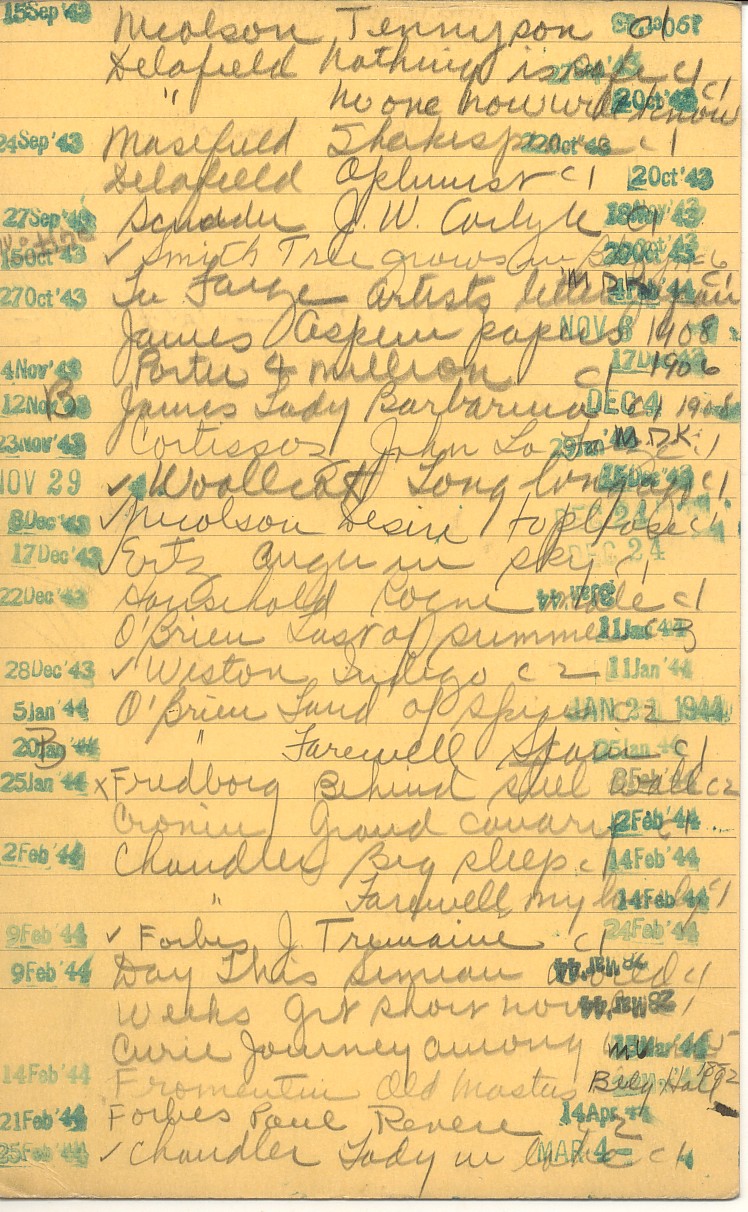 15Sep'43 Nicolson Tennyson c1
Delafield Nothing is safe c1
" No one now will know c1 2Oct'43
24Sep'43 Masefield Shakesp c1 22Oct'43
Delafield Optimist c1 12Oct'43
27Sep'43 Scudder J.W. Carlyle c1
15Oct'43 ✓ Smith Tree grows in B c6 20Oct'43
27Oct'43 La Farge Artists letters c1 MDK 4Feb'44
James Aspern papers NOV 8 1908
4Nov'43 Porter 4 million c1 17Dec'43 1906
12Nov'43 B James Lady Barbarina c1 DEC 4 1908
23Nov'43 Cortissoz John La F c1 29Jan'44 M.D.K.
NOV 29 ✓ Woollcott Long long ago c1 15Dec'43
8Dec'43 ✓ Nicolson Desire to please c1 DEC 24
17Dec'43 ✓ Ertz Anger in sky c1 DEC 24
22Dec'43 Household Rogue male c1 8Jan'44
O'Brien Last of summer c3 11Jan'44
28Dec'43 ✓ Weston Indigo c2 11Jan'44
5Jan'44 O'Brien Land of spices c2 JAN 21 1944
20Jan'44 B " Farewell Spain c1 25Jan'44
25Jan'44 x Fredborg Behind steel wall c2 8Feb'44
Cronin Grand canary c1 2Feb'44
2Feb'44 Chandler Big sleep c1 14Feb'44
" Farewell, my lovely c1 14Feb'44
9Feb'44 ✓ Forbes J. Tremaine c1 24Feb'44
9Feb'44 Day This simian world c1 28Mar'44
Weeks Gt short novels c1 28Mar'44
Curie Journey among Mar'44 c5
14Feb'44 Fromentin Old Masters Bely Hall 1882
21Feb'44 Forbes Paul Revere c2 14Apr'44
25Feb'44 ✓ Chandler Lady in lake c1 MAR 4